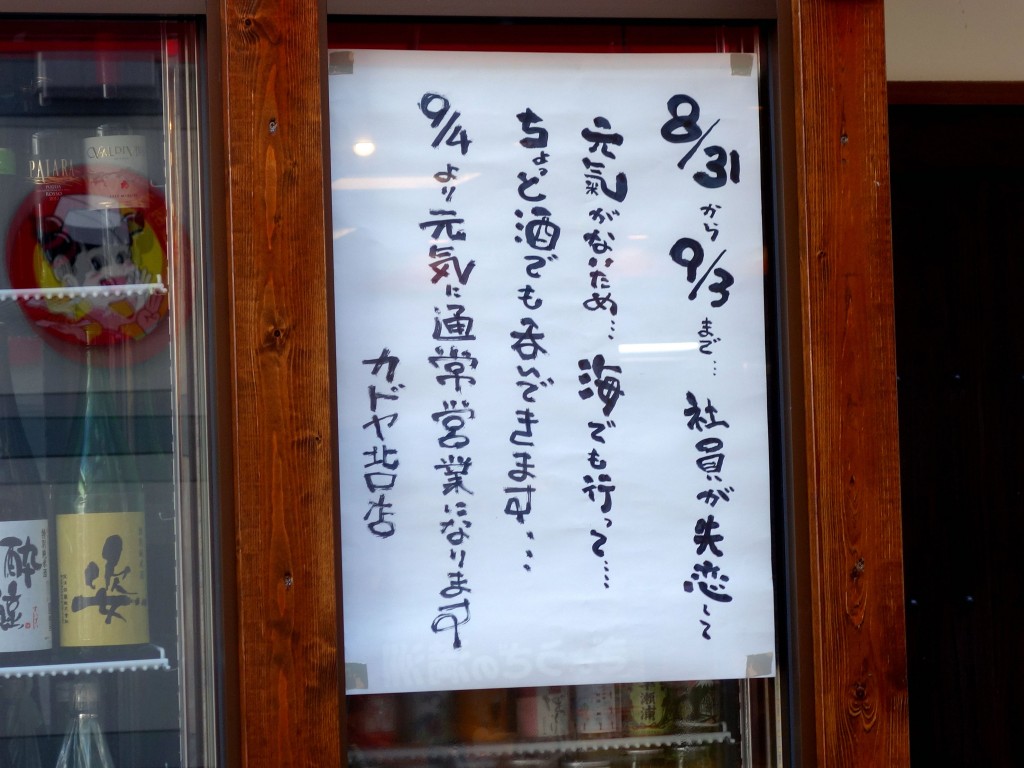 8/31から9/3まで… 社員が失恋して
元氣がないため… 海でも行って……
ちょっと酒でも呑んできます…
9/4より元気に通常営業になります
カドヤ北口店
PAIARA
姿
酔